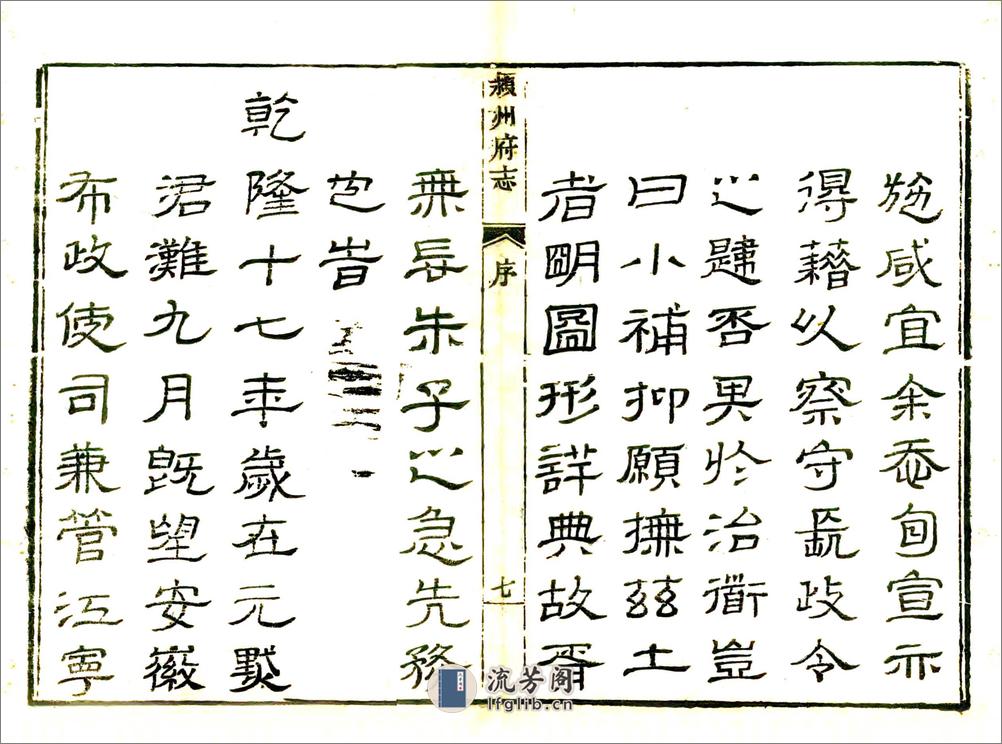 施咸宜余忝旬宣示
得藉以察守長政令
之韙否其於治衜豈
曰小補抑願撫茲土
者朙圖形詳典故胥
潁州府志
序
七
無忘朱子之急先務
也旹
乾隆十七年歲在元黓
涒灘九月既望安徽
布政使司兼管江寧
流芳阁
lfglib.cn